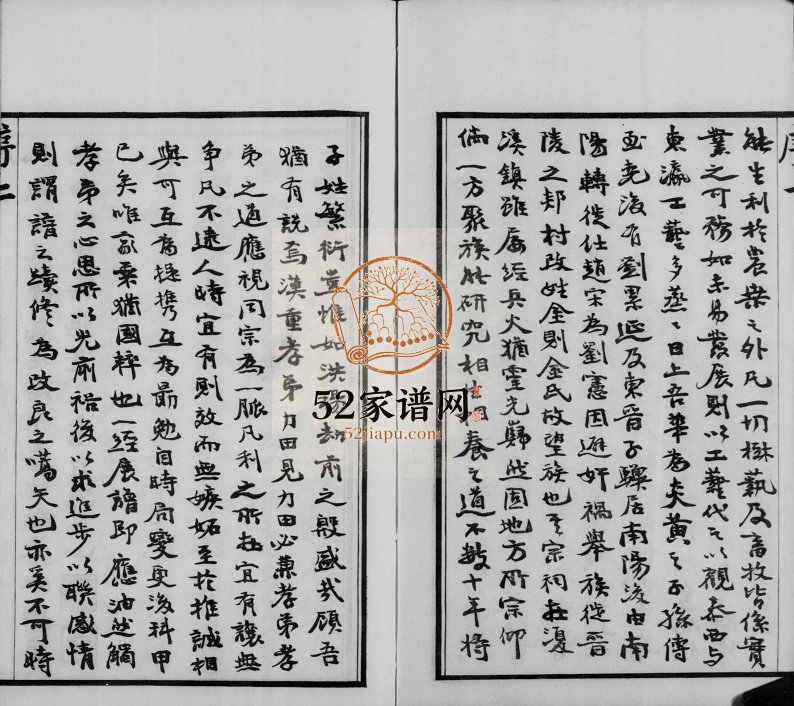 序一
能生利於農桑之外凡一切樹藝及畜牧皆係實
業之可務如未易發展則以工藝代之以觀泰西与
東瀛工藝多蒸蒸日上吾華為炎黄之子孫傳
至堯後有劉累延及東晉子驥居南陽後由南
陽轉徙仕趙宋為劉憲因避奸禍舉族徙晉
陵之邦村改姓金則金氏故望族也其宗祠在湟
溪鎮雖屡經兵火猶靈光巋然固地方所宗仰
倘一方聚族能研究相生相養之道不數十年將
子姓繁衍豈惟如洪楊劫前之殷盛哉顧吾
猶有説焉漢重孝弟力田見力田必兼孝弟孝
弟之道應視同宗為一脈凡利之所在宜有讓無
争凡不逮人時宜有則效而無嫉妬至於推誠相
與可互為提携互為勗勉自時局變更後科甲
已矣唯家乘猶國粹也一經展譜即應油然觸
孝弟之心思所以光前裕後以求進步以聯感情
則謂譜之賡修為改良之嚆矢也亦奚不可時
序二
52家谱网
52jiapu.com